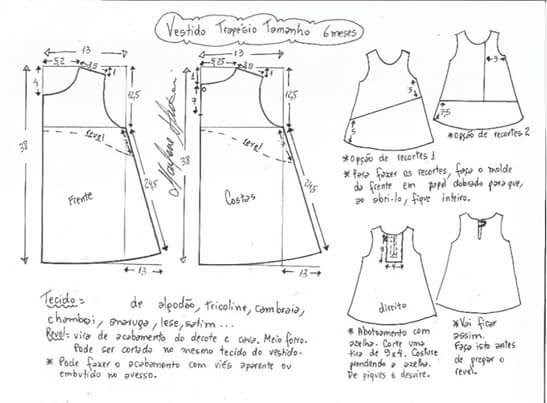 Vestido Trapézio Tamanho 6 meses
13
5,2
3,5
1
4
12,5
38
revel
3
Frente
24,5
13
13
5,25
3,5
1
1
7
12,5
38
revel
3
Costas
24,5
13
5
5
*Opção de recortes 1
9
7,5
*Opção de recortes 2
*Para fazer os recortes, faça o molde
da frente em papel dobrado para que,
ao abri-lo, fique inteiro.
4
direito
*Abotoamento com
azelha. Corte uma
tira de 9x4. Costure
prendendo a azelha.
De piques e desvire.
*Vai ficar
assim.
Faça isto antes
de pregar o
revel.
Tecido = de algodão, tricoline, cambraia,
chamboi, anaruga, lese, satim...
Revel = vira de acabamento do decote e cava. Meio forro.
Pode ser cortado no mesmo tecido do vestido.
* Pode fazer o acabamento com viés aparente ou
embutido no avesso.